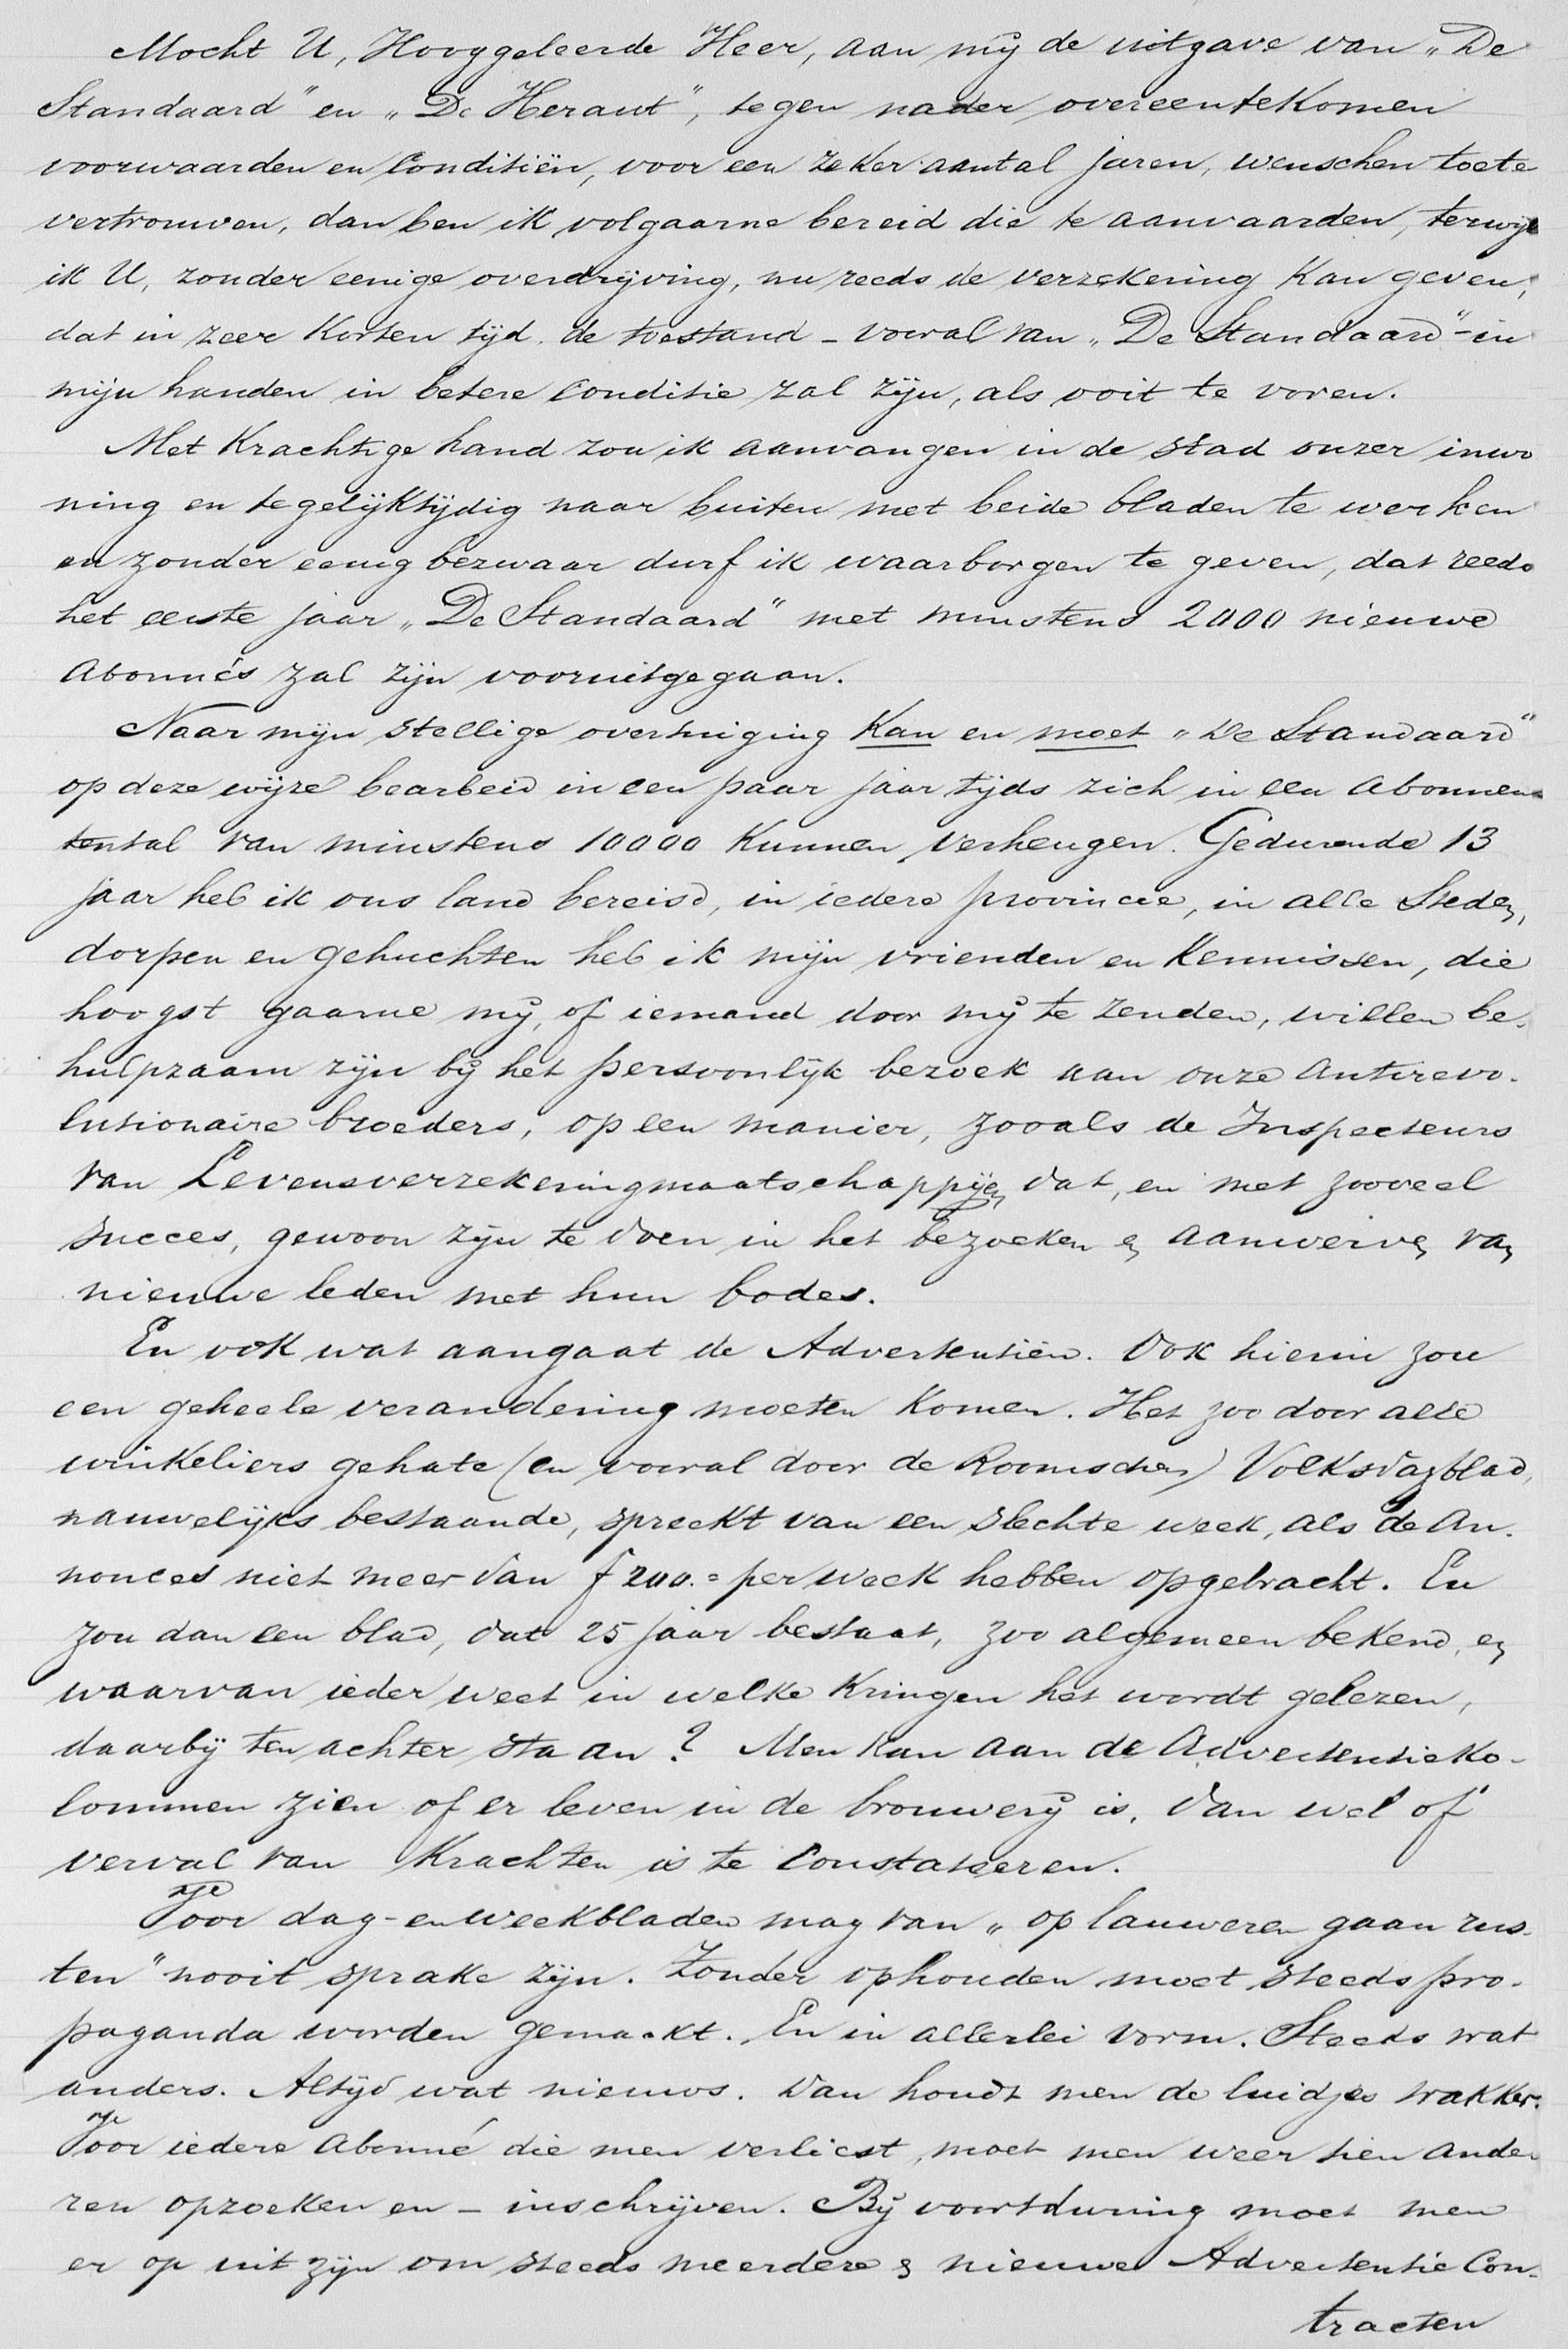 Mocht U, Hooggeleerde Heer, aan mij de uitgave van „De
Standaard" en „De Heraut", tegen nader overeentekomen
voorwaarden en Conditiën, voor een zeker aantal jaren, wenschen toete
vertrouwen, dan ben ik volgaarne bereid die te aanvaarden, terwijl
ik U, zonder eenige overdrijving, nu reeds de verzekering kan geven,
dat in zeer korten tijd de toestand - vooral van „De Standaard" - in
mijn handen in betere Conditie zal zijn, als ooit te voren.
Met krachtige hand zou ik aanvangen in de stad onzer inwo
ning en tegelijktijdig naar buiten met beide bladen te werken
en zonder eenig bezwaar durf ik waarborgen te geven, dat reeds
het eerste jaar „De Standaard" met minstens 2000 nieuwe
Abonnés zal zijn vooruitgegaan.
Naar mijn stellige overtuiging kan en moet „De Standaard"
op deze wijze bearbeid in een paar jaar tijds zich in een Abonnen-
tental van minstens 10000 kunnen verheugen. Gedurende 13
jaar heb ik ons land bereisd, in iedere provincie, in alle Steden,
dorpen en gehuchten heb ik mijn vrienden en kennissen, die
hoogst gaarne mij, of iemand door mij te zenden, willen be-
hulpzaam zijn bij het persoonlijk bezoek aan onze Antirevo-
lutionaire broeders, op een manier, zooals de Inspecteurs
van Levensverzekeringmaatschappijen dat, en met zooveel
succes, gewoon zijn te doen in het bezoeken en aanwerven van
nieuwe leden met hun bodes.
En ook wat aangaat de Advertentiën. Ook hierin zou
een geheele verandering moeten komen. Het zoo door alle
winkeliers gehate (en vooral door de Roomschen) Volksdagblad,
nauwelijks bestaande, spreekt van een slechte week, als de An-
nonces niet meer dan f 200.= per week hebben opgebracht. En
zou dan een blad, dat 25 jaar bestaat, zoo algemeen bekend, en
waarvan ieder weet in welke kringen het wordt gelezen,
daarbij ten achter staan? Men kan aan de Advertentieko-
lommen zien of er leven in de brouwerij is, dan wel of
verval van krachten is te Constateeren.
Voor dag- en weekbladen mag van „op lauweren gaan rus-
ten" nooit sprake zijn. Zonder ophouden moet steeds pro-
paganda worden gemaakt. En in allerlei vorm. Steeds wat
anders. Altijd wat nieuws. Dan houdt men de luidjes wakker.
Voor iedere Abonné die men verliest, moet men weer tien ande
ren opzoeken en - inschrijven. Bij voortduring moet men
er op uit zijn om steeds meerdere & nieuwe Advertentie Con-
tracten